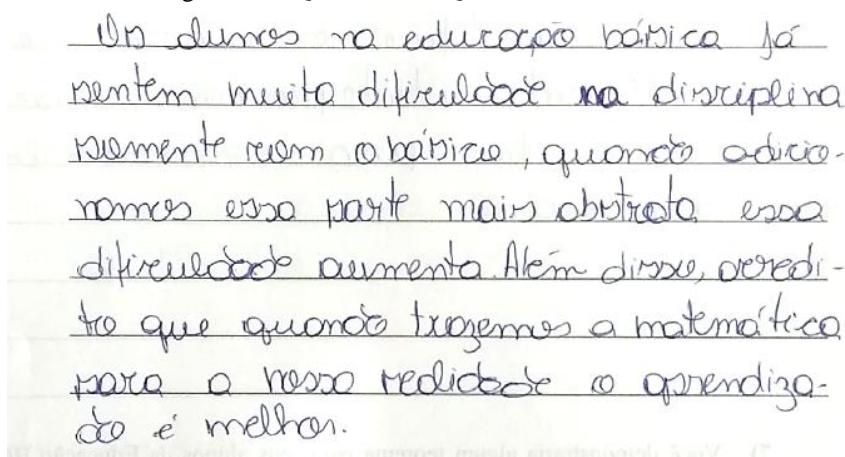 Os alunos na educação básica já
sentem muita dificuldade na disciplina
somente com o básico, quando adicio-
namos essa parte mais abstrata essa
dificuldade aumenta. Além disso, acredi-
to que quando trazemos a matemática
para a nossa realidade o aprendiza-
do é melhor.